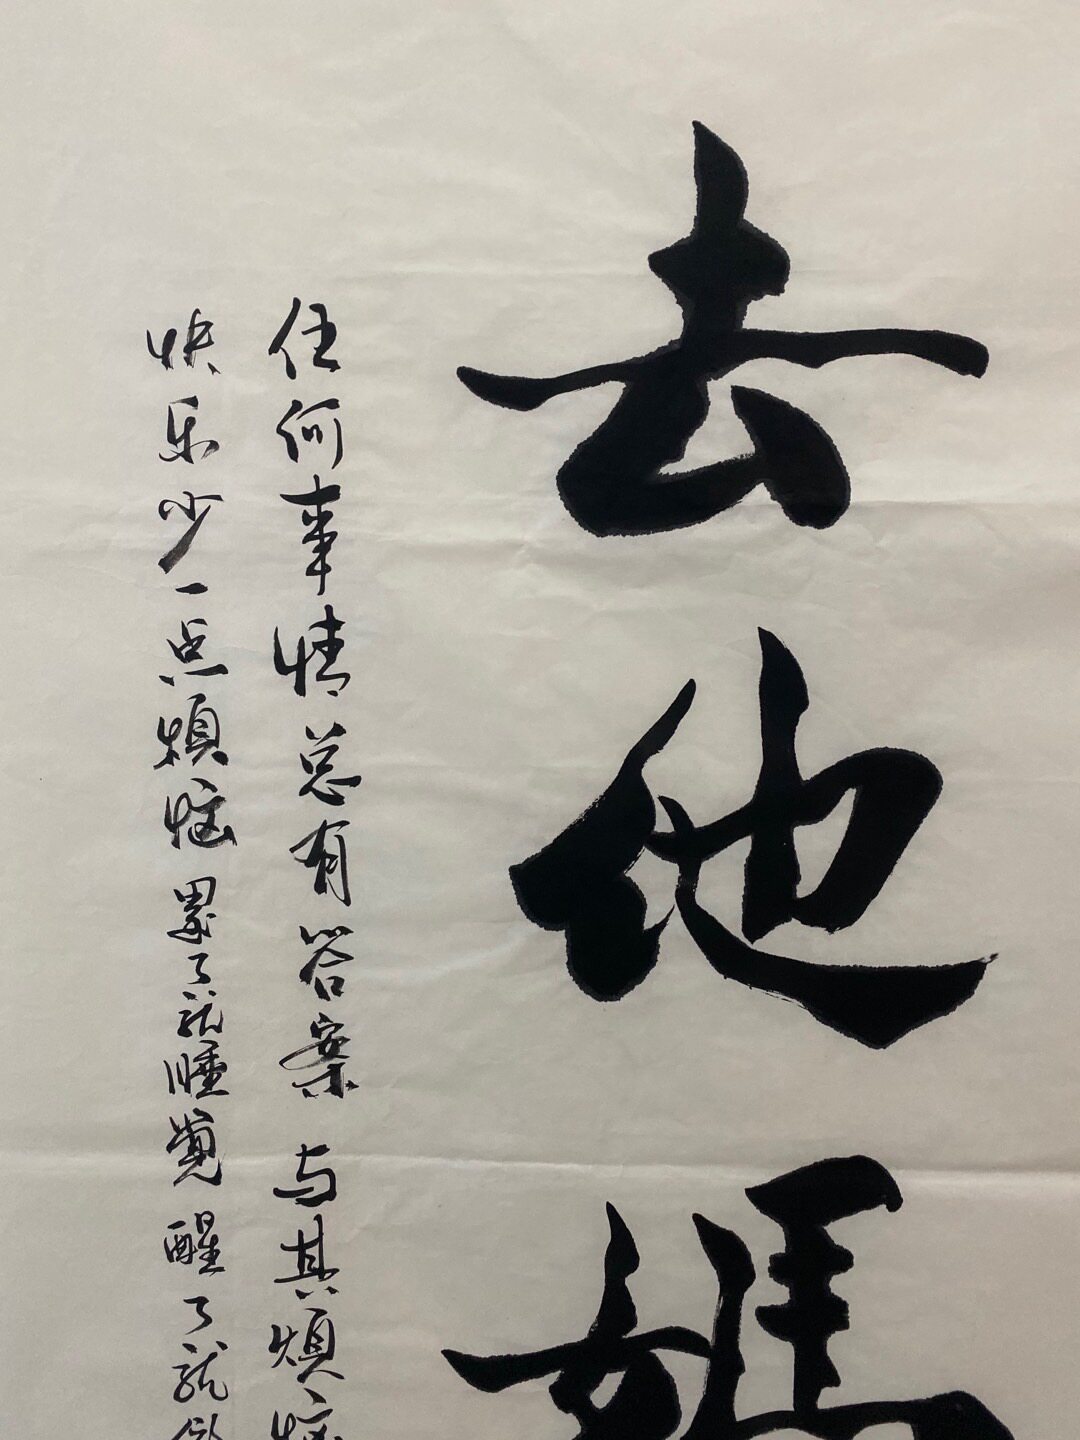 去他媽
任何事情总有答案 与其煩恼
快乐少一点煩恼 累了就睡觉 醒了就微